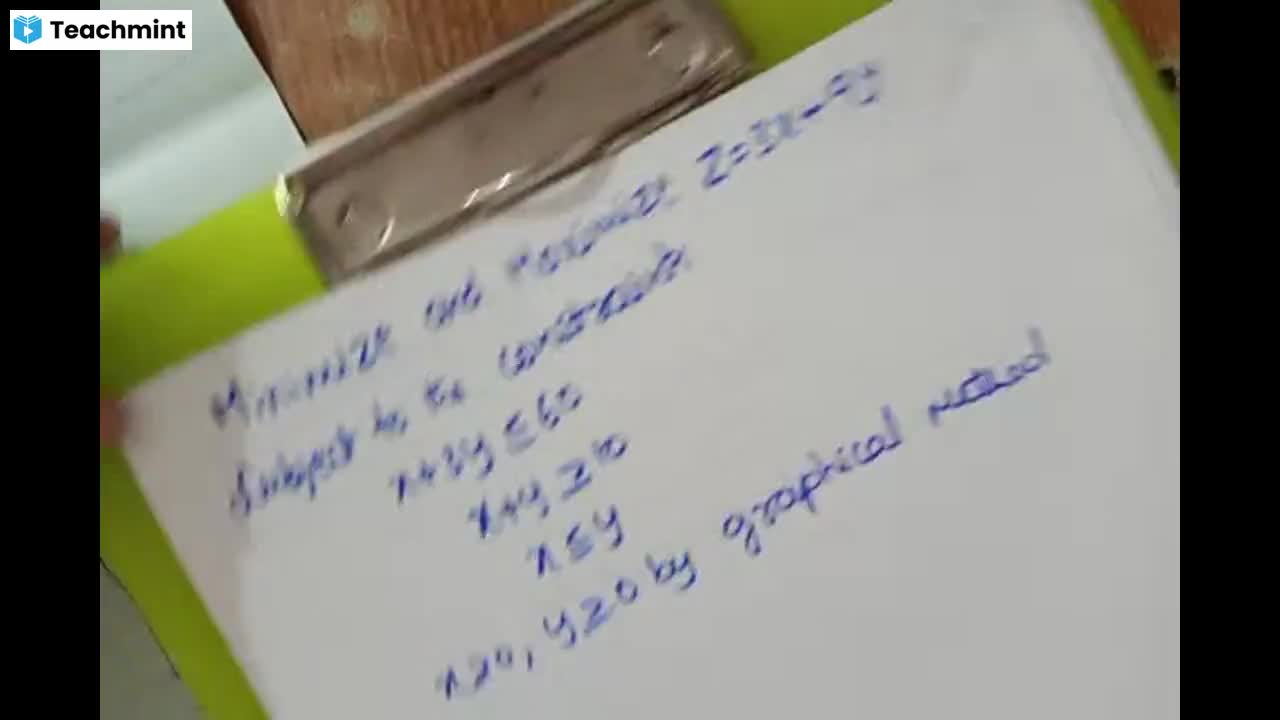 Teachmint
Minimize and Maximize Z=3x-9y
Subject to the constraints
x+3y ≤ 60
x+y ≥ 10
x ≤ y
x≥0, y≥0 by graphical method